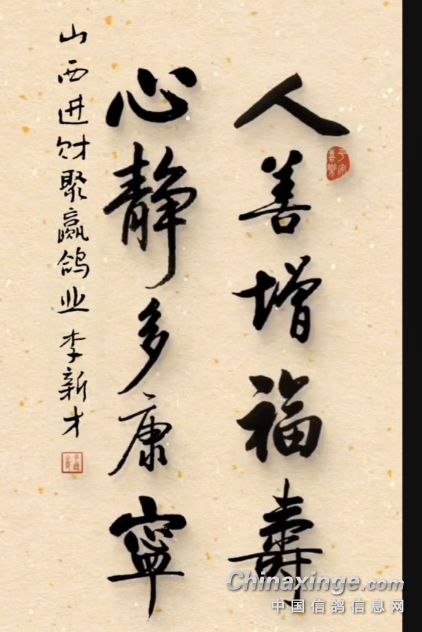 人善增福壽
心静多康寧
山西进财聚赢鸽业 李新才
Chinaxinge.com
中国信鸽信息网